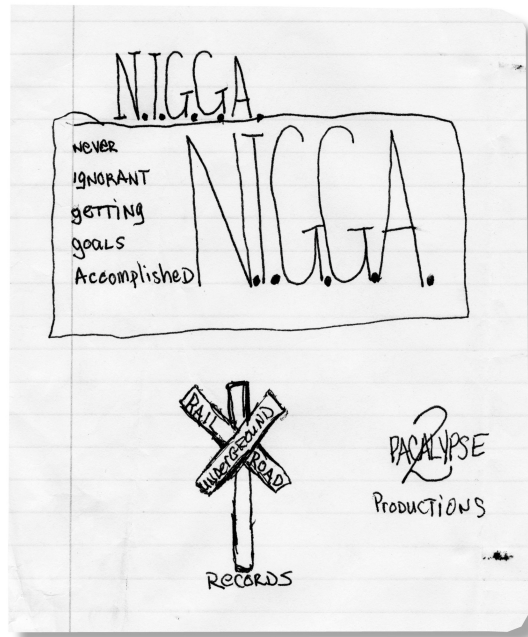 N.I.G.G.A.
NEVER
IGNORANT
GETTING
GOALS
ACCOMPLISHED
N.I.G.G.A.
RAIL
UNDERGROUND
ROAD
RECORDS
2
PACALYPSE
PRODUCTIONS